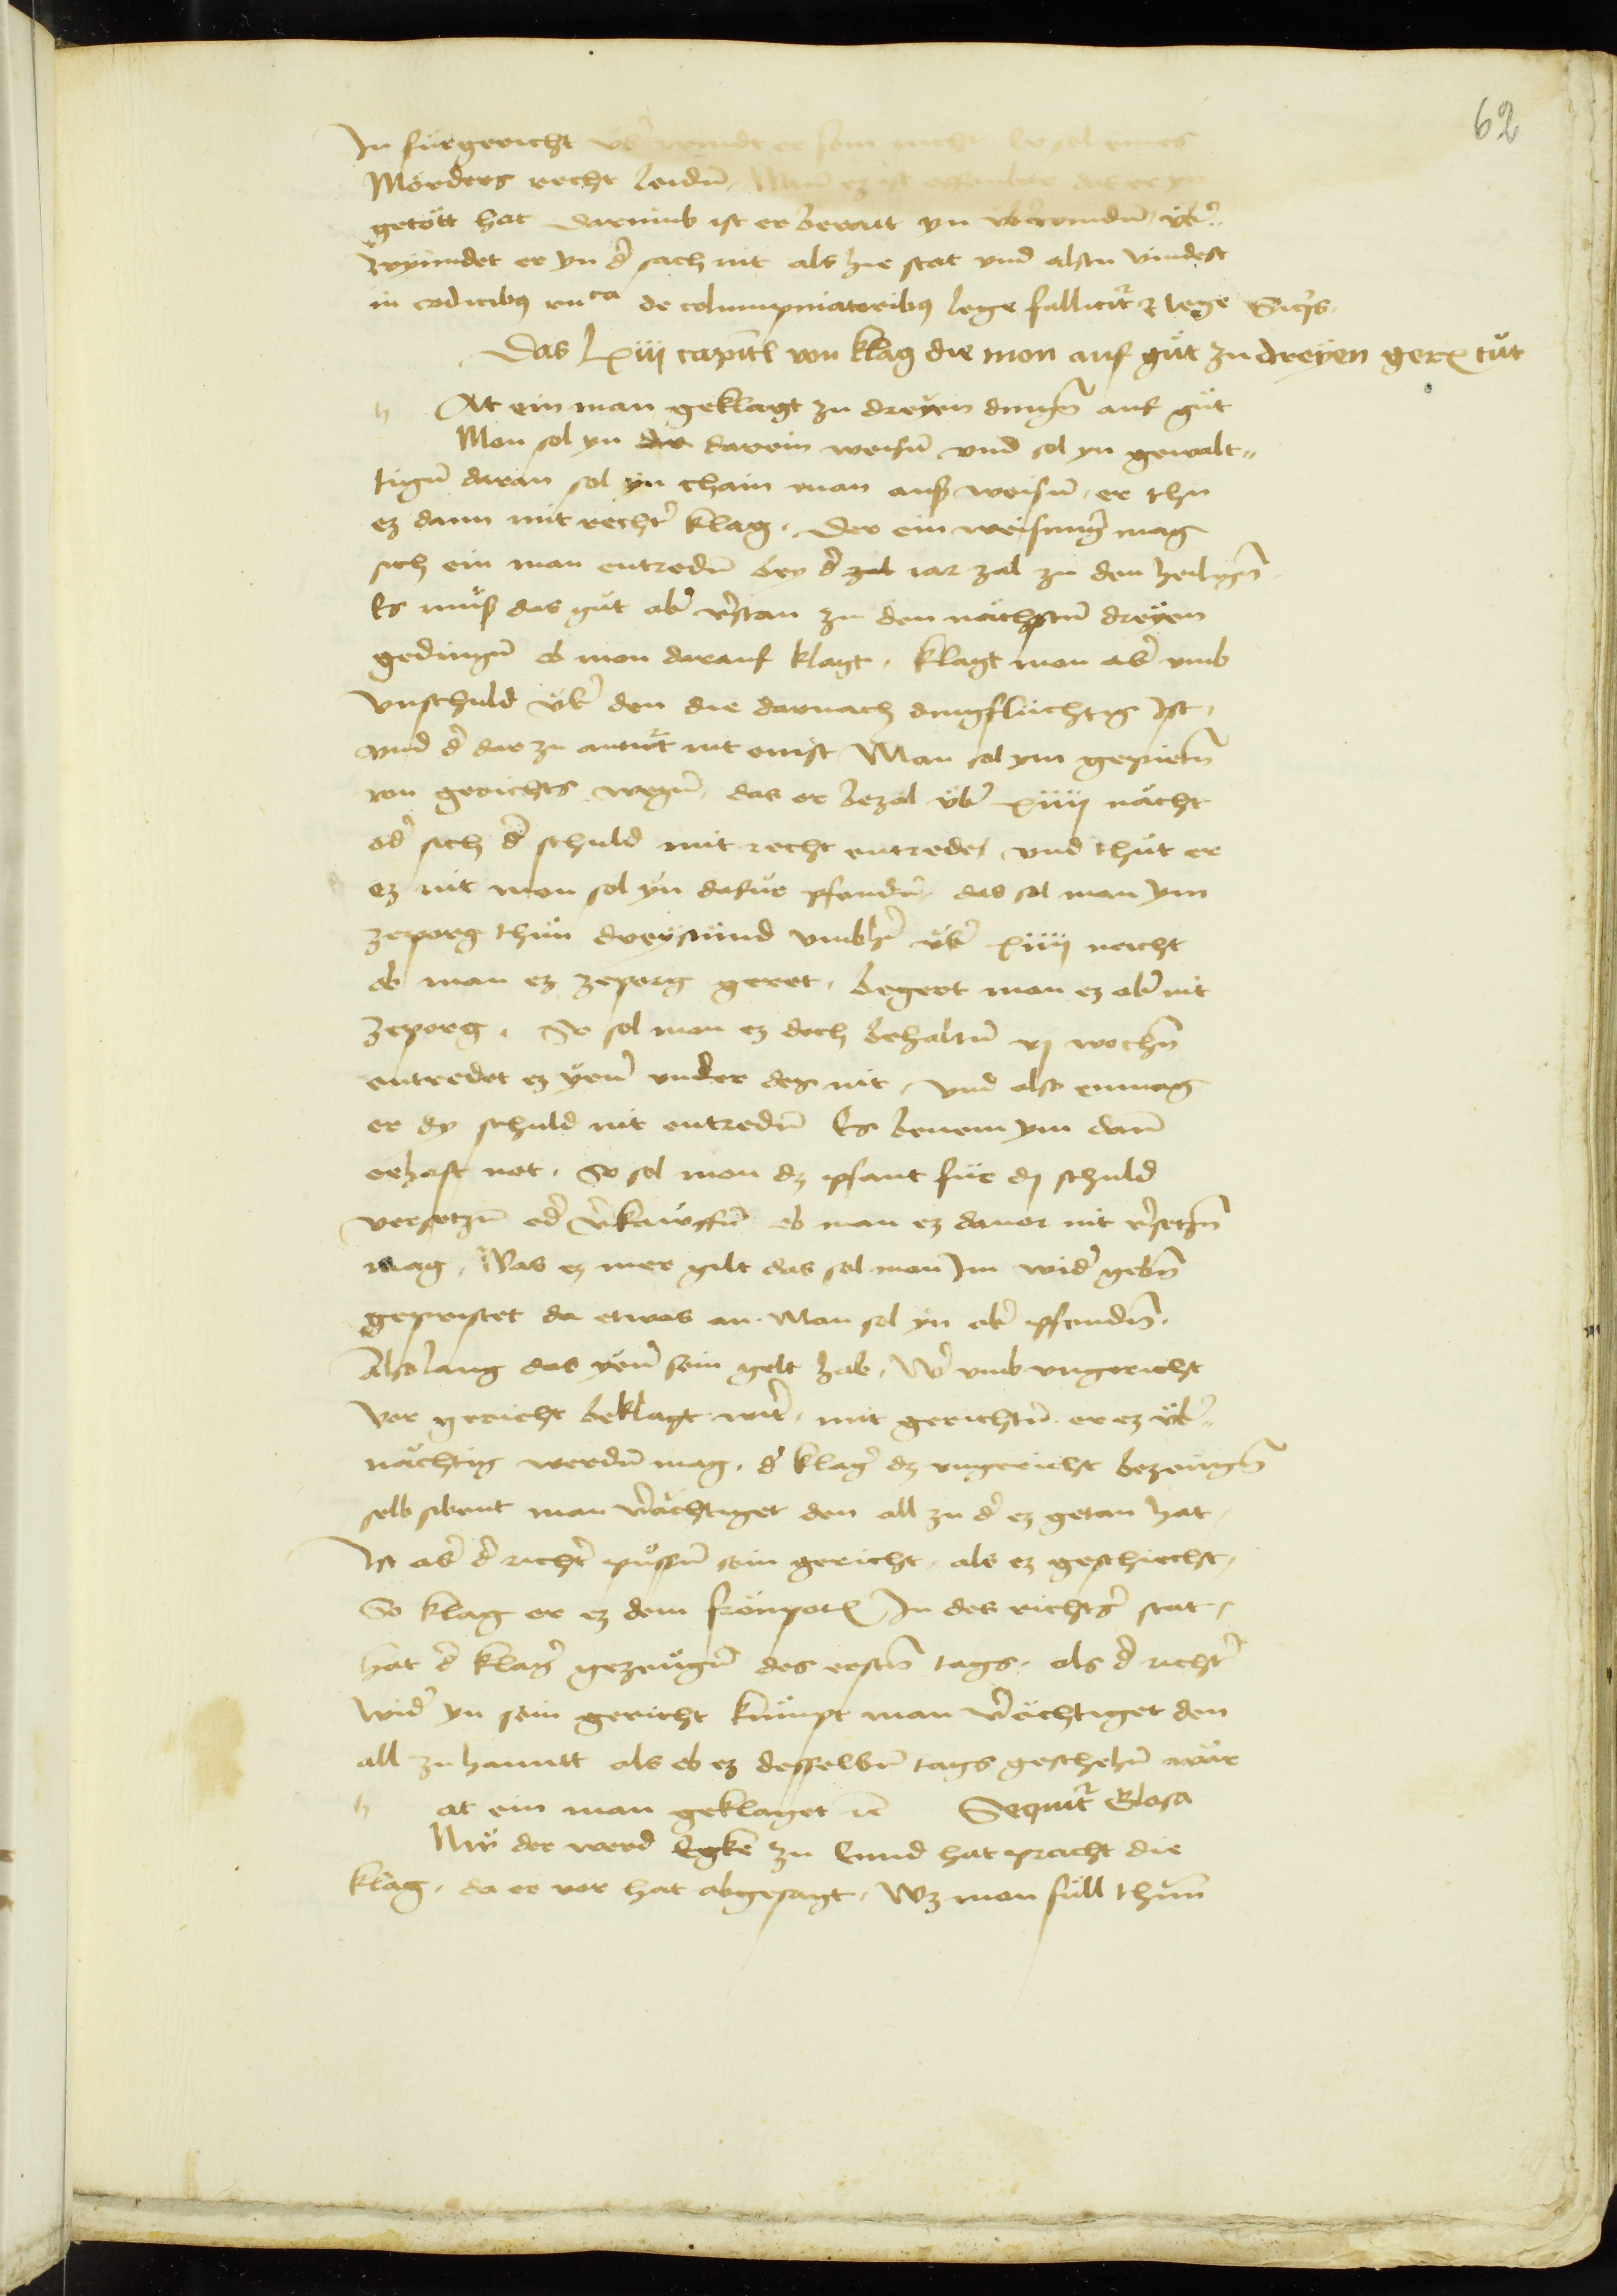 62
In fürgericht vb̄ windt er sein nicht Er sol eines
Mörders recht leidn̄, Wan̄ ez ist offenbar das er yn
getött hat darumb ist er berait yn vb̄rwindn̄, vb̄r⸗
wyundet er yn d̄ sach nit als hie stat vnd alstu vindest
in codicibꝫ ru^ca de columpniatoribꝫ lege fallitᷣ ⁊ lege
Das Lxiij capitl̄ von klag die mon auf gůt zu dreÿen ger tůt
h At ein man geklagt zu dreÿen dingn̄ auf gůt
Mon sol yn die darein weisn̄ vnd sol yn gewalt⸗
tign̄ daran sol yn chain man auß weisn̄, er thu
ez dann mit rechtr̄ klag, Der ein weisung mag
sich ein man entredn̄ bey d̄ zal iar zal zu den heilign̄
Es můß das gůt ab̄ v̄stan zu den nächstn̄ dreÿen
gedingn̄ ob mon darauf klagt, klagt mon ab̄ vmb
vnschuld vb̄ den die darnach dingflüchtig ist,
vnd d̄ dar zu antwt̄ nit enist, Man sol ym gepietn̄
von gerichts wegn̄, das er bezal vb̄ xiiij nächt
od̄ sich d̄ schuld mit recht entrede, vnd thůt er
ez nit mon sol yn dafür pfendn̄, das sol man ym
zeporg thůn dreÿstund vmbhr̄ vb̄ xiiij necht
ob man ez zeporg gerot, begert mon ez ab̄ nit
zeporg, So sol mon ez doch behaltn̄ vj wochn̄
entredet ez yenr̄ vnder des nit, vnd also enmag
er dy schuld nit entredn̄ Es benem ym dan̄
eehaft not, So sol mon dz pfant für dj schuld
versetzn̄ od̄ v̄kauffn̄ ob man ez dauor nit v̄setzn̄
mag, Was ez mer gilt das sol mon Im wid̄ gebn̄
gepristet da etwas an, Man sol yn ab̄ pfendn̄,
Also lang das yenr̄ sein gelt hab, Wr̄ vmb vngericht
vor gericht beklagt wirt̄, mit gerichtn̄ er ez vb̄r⸗
nächtig werdn̄ mag, d̄ klagr̄ dz vngericht bezeugn̄
selb sibent man v̄ächtiget den all zu d̄ ez getan hat,
Ist ab̄ d̄ richtr̄ půssn̄ sein gericht, als ez geschiecht,
So klag er ez dem fronpotn̄ In des richtrs̄ stat,
hat d̄ klagr̄ gezeugn̄ des erstn̄ tags, als d̄ richtr̄
wid̄ yn sein gericht kumpt man v̄ächtiget den
all zu hanntt als ob ez desselbn̄ tags geschehn̄ wär
h at ein man geklaget ⁊c̄ Sequitᷣ Glosa
Nw̄ der werd Egke zu Ennd hat pracht die
klag, da er vor hat abgesagt, Wz mon süll thůn